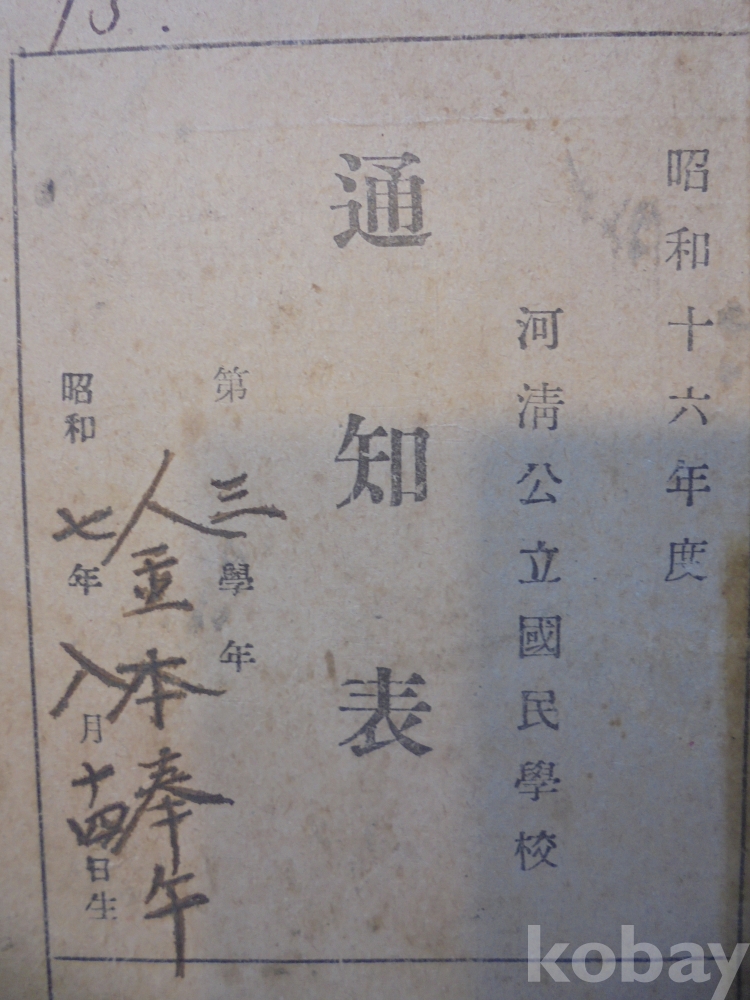 13.
昭和十六年度
河淸公立國民學校
通知表
第三學年
金本奉午
昭和七年八月十四日生
kobay